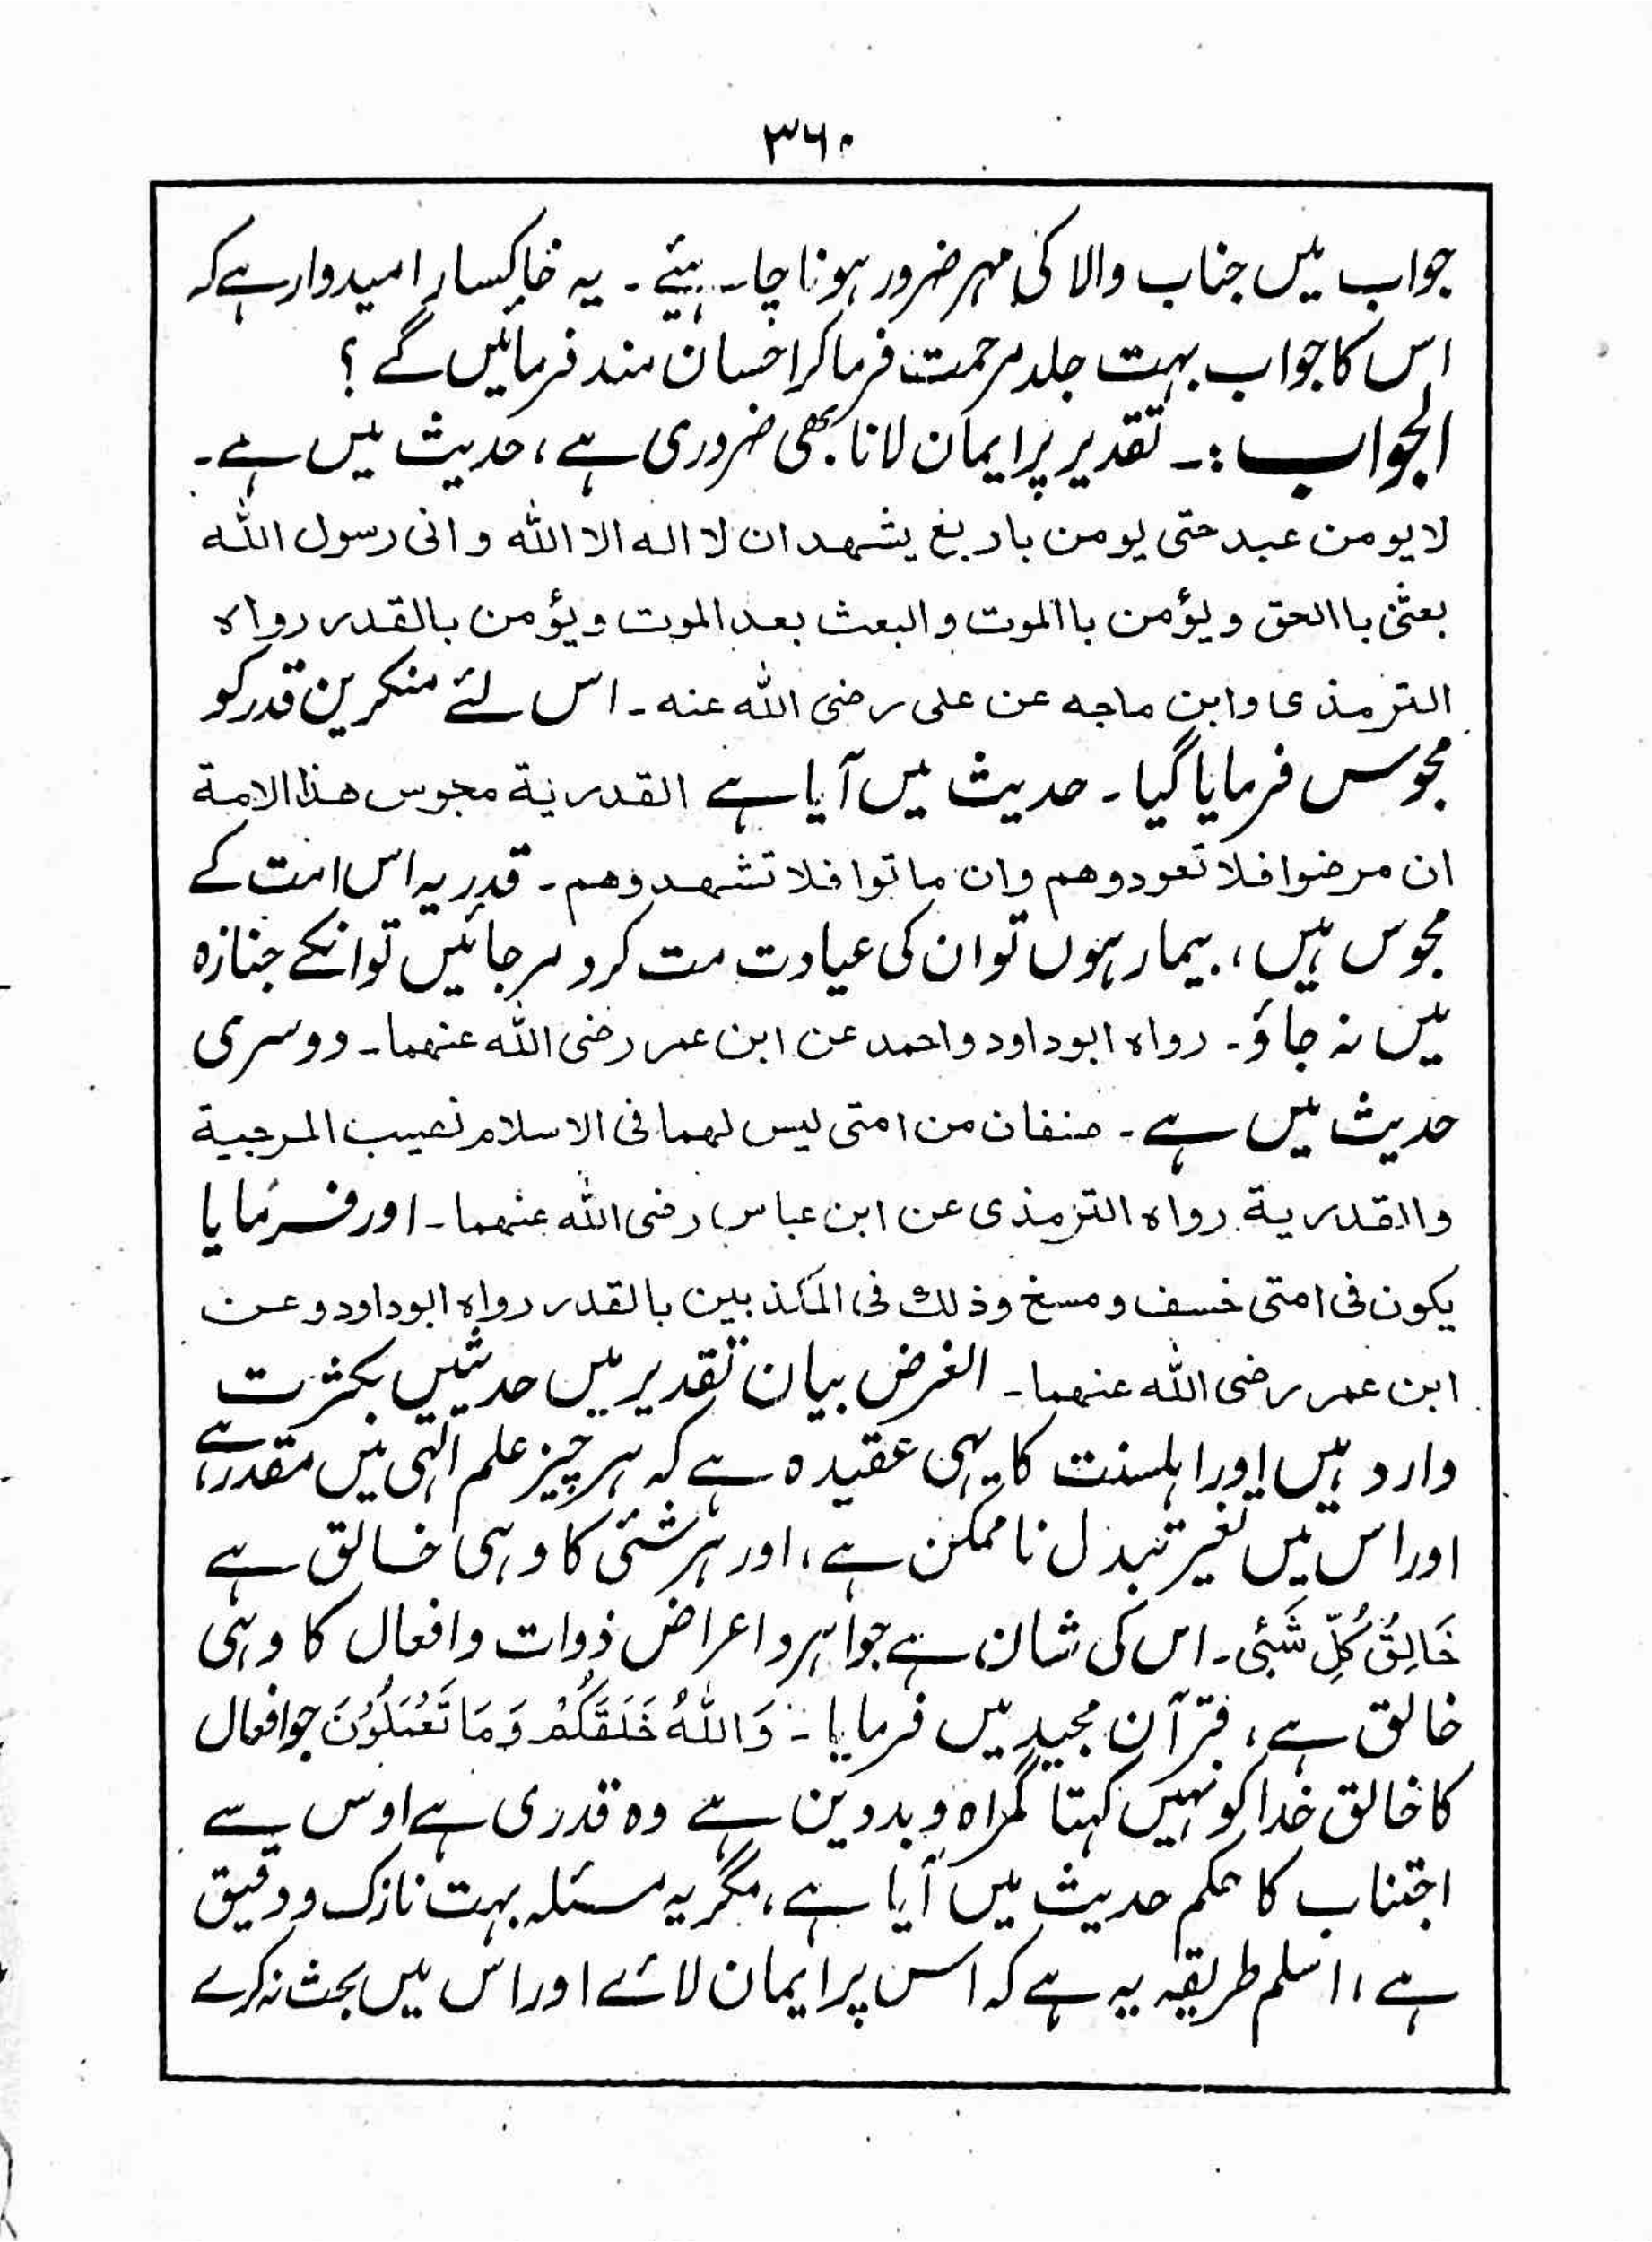 ۳۶۰
جواب میں جناب والا کی مہر ضرور ہونا چاہیئے ۔ یہ خاکسار امیدوار ہے کہ
اس کا جواب بہت جلد مرحمت فرما کر احسان مند فرمائیں گے ؟
الجواب :۔ تقدیر پر ایمان لانا بھی ضروری ہے، حدیث میں ہے ۔
لا یومن عبد حتی یومن باربع یشهد ان لا اله الا الله و انی رسول الله
بعثنی باالحق و یؤمن باالموت و البعث بعد الموت و یؤمن بالقدر رواه
الترمذی وابن ماجه عن علی رضی الله عنه ۔ اس لئے منکرین قدر کو
مجوس فرمایا گیا ۔ حدیث میں آیا ہے القدریة مجوس هذا الامة
ان مرضوا فلا تعودوهم وان ماتوا فلا تشهدوهم ۔ قدریہ اس امت کے
مجوس ہیں، بیمار ہوں تو ان کی عیادت مت کرو مرجائیں تو انکے جنازہ
میں نہ جاؤ ۔ رواه ابوداود و احمد عن ابن عمر رضی الله عنهما ۔ دوسری
حدیث میں ہے ۔ صنفان من امتی لیس لهما فی الاسلام نصیب المرجیة
والقدریة رواه الترمذی عن ابن عباس رضی الله عنهما ۔ اور فرمایا
یکون فی امتی خسف و مسخ وذلك فی المکذبین بالقدر رواه ابوداود و عن
ابن عمر رضی الله عنهما ۔ الغرض بیان تقدیر میں حدیثیں بکثرت
وارد ہیں اور اہلسنت کا یہی عقیدہ ہے کہ ہر چیز علم الٰہی میں مقدر ہے،
اور اس میں تغیر تبدل ناممکن ہے، اور ہر شئی کا وہی خالق ہے
خَالِقُ کُلِّ شَیْئٍ ۔ اس کی شان ہے جواہر و اعراض ذوات و افعال کا وہی
خالق ہے، قرآن مجید میں فرمایا ۔ وَاللّٰهُ خَلَقَکُمْ وَمَا تَعْمَلُوْنَ جو افعال
کا خالق خدا کو نہیں کہتا گمراہ و بددین ہے وہ قدری ہے اوس سے
اجتناب کا حکم حدیث میں آیا ہے، مگر یہ مسئلہ بہت نازک و دقیق
ہے، اسلم طریقہ یہ ہے کہ اس پر ایمان لائے اور اس میں بحث نہ کرے